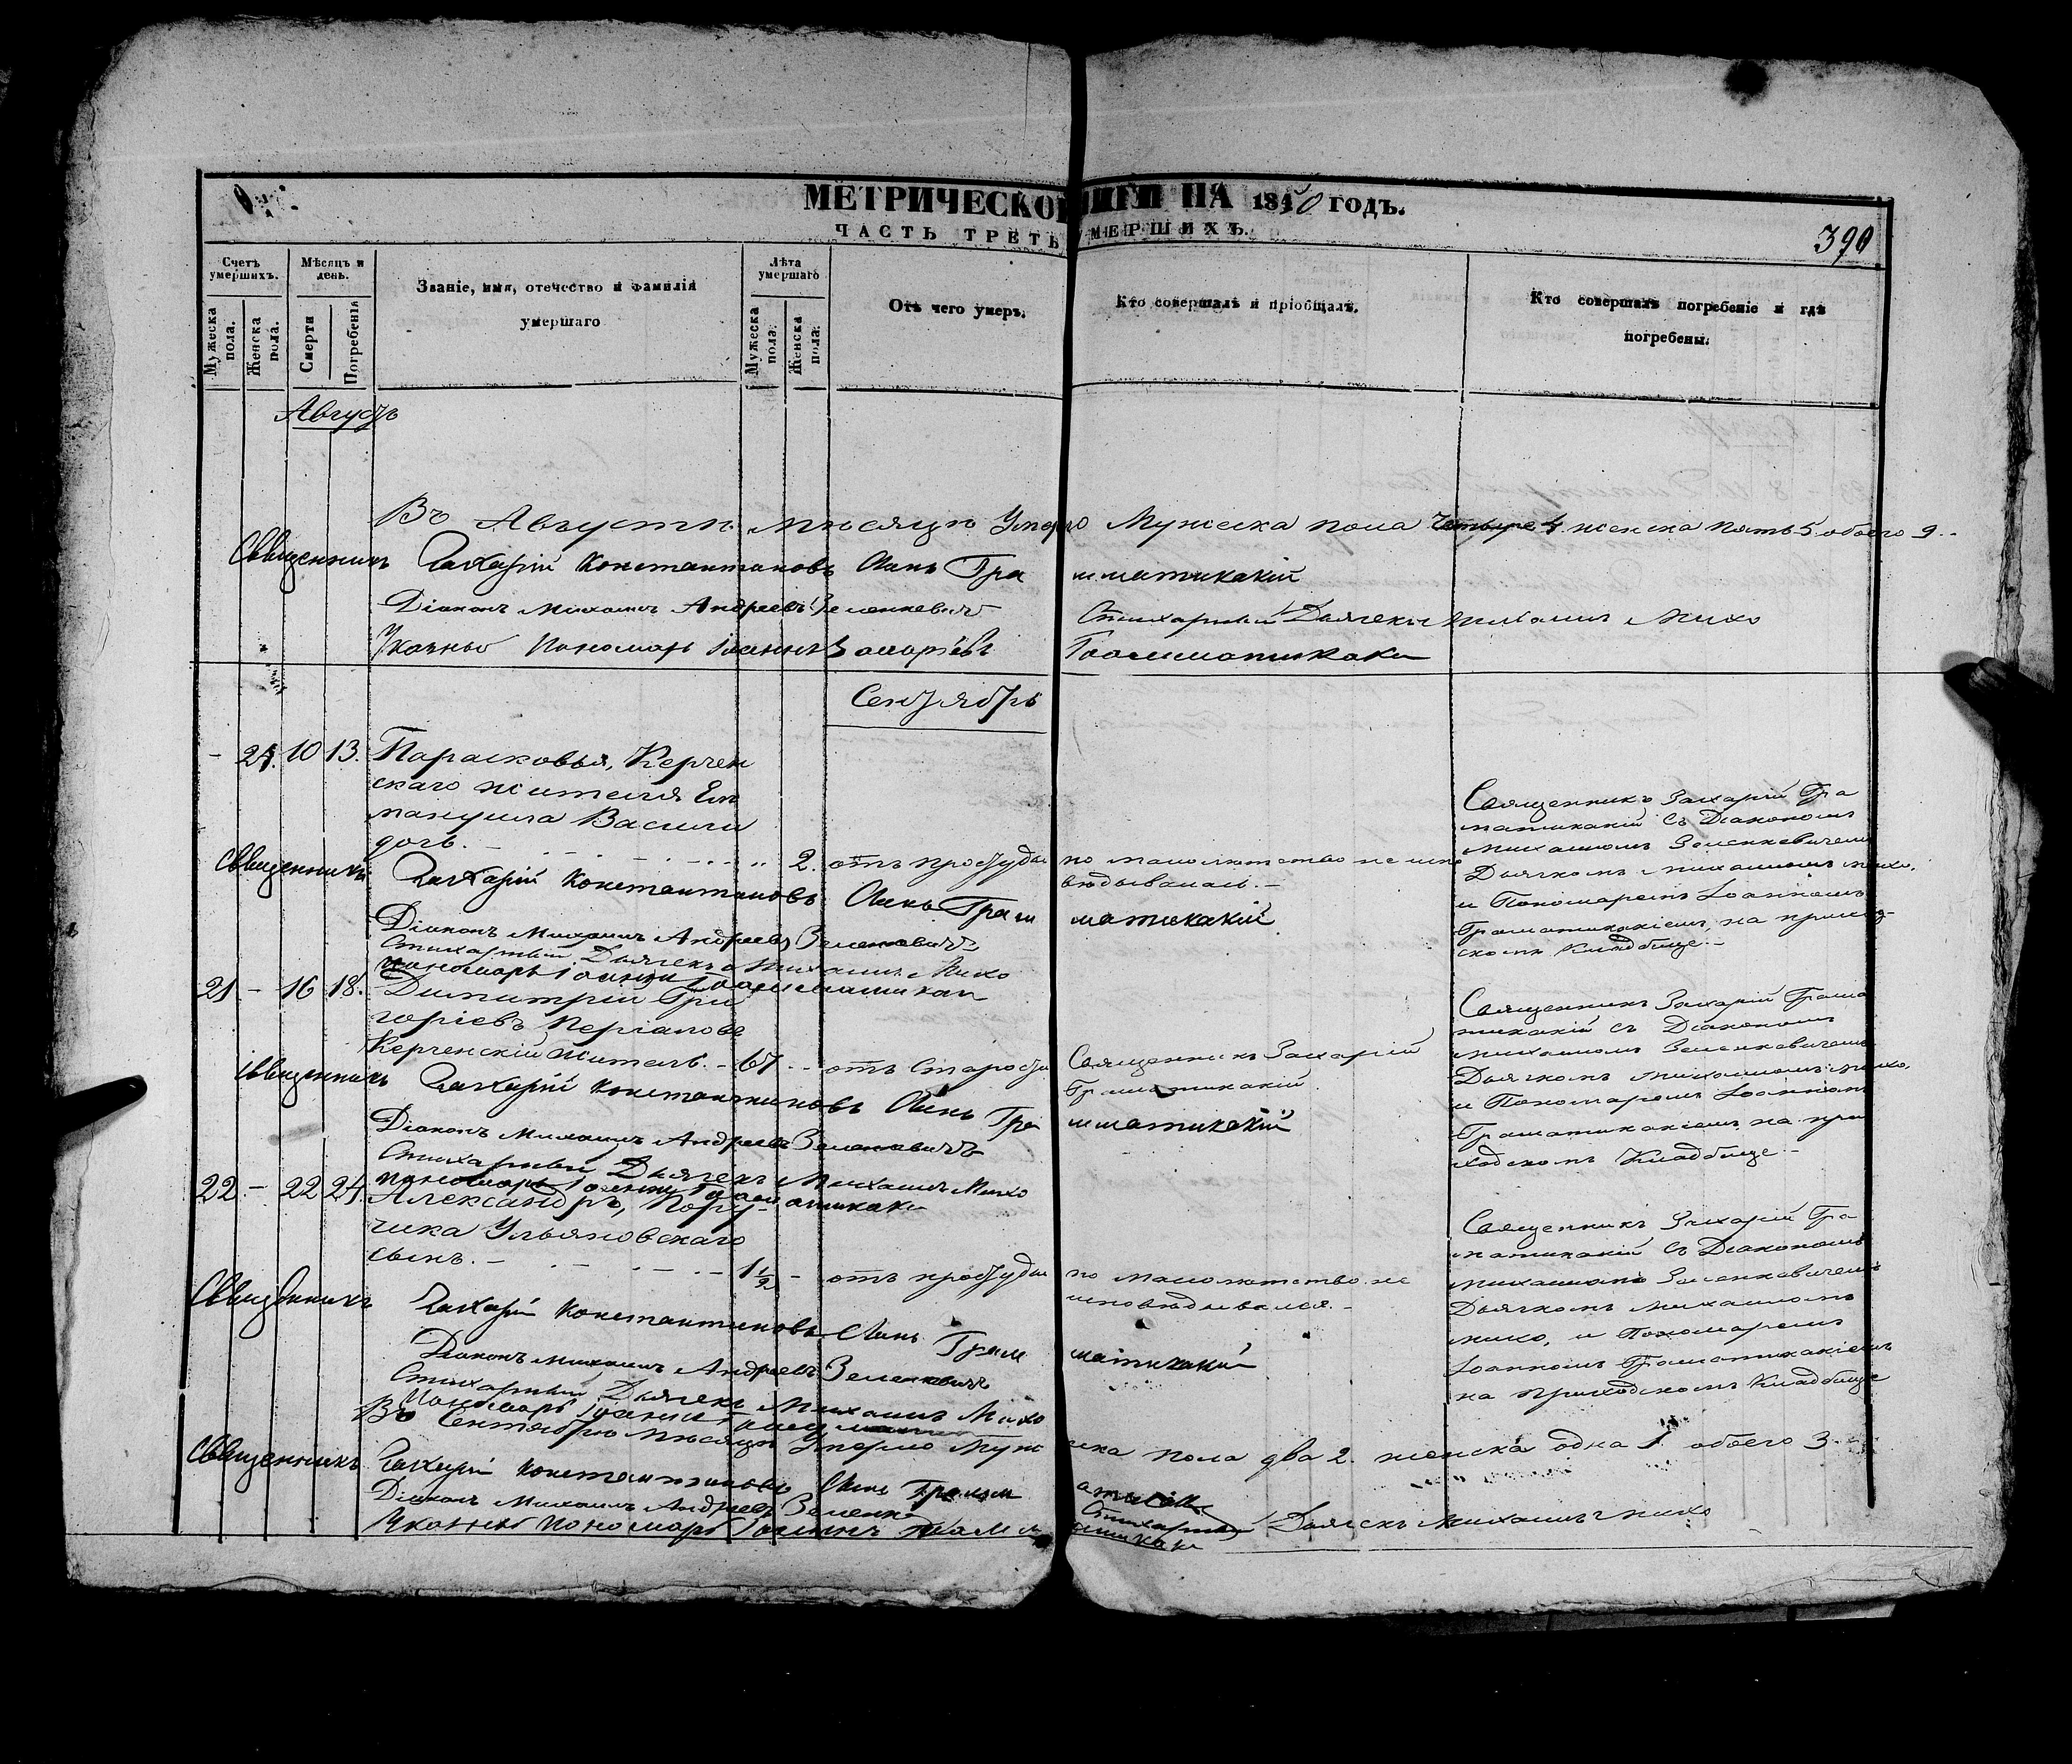 МЕТРИЧЕСКОЙ КНИГИ НА 1850 ГОДЪ.
ЧАСТЬ ТРЕТЬ УМЕРШИХЪ.
390
Счетъ умершихъ.
Мужеска пола.
Женска пола.
Мѣсяцъ и день.
Смерти
Погребенія
Званіе, имя, отечество и фамилія
умершаго
Лѣта умершаго
Мужеска пола.
Женска пола.
Отъ чего умеръ.
Кто совершалъ и пріобщалъ.
Кто совершалъ погребеніе и гдѣ
погребены.
Августъ
Въ Августѣ мѣсяцѣ Умерло Мужеска пола четыре 4 женска пять 5 обоего 9.
Священникъ Захарій Константиновъ сынъ Грамматикакій
Діаконъ Михаилъ Андреевъ Зеленкевичъ
Стихарный Дьячекъ Михаилъ Михо
Указный Пономарь Іоаннъ Грамматикаки
Сентябрь
- 24. 10 13. Парасковья, Керчен
скаго жителя Ем
мануила Васили
дочь. 2. отъ простуды
по малолѣтству не испо
вѣдывалась.-
Священникъ Захарій Гра
матикакій съ Діакономъ
Михаиломъ Зеленкевичемъ
Дьячкомъ Михаиломъ Михо,
и Пономаремъ Іоанномъ
Граматикакіемъ, на приход-
скомъ Кладбище.-
Священникъ Захарій Константиновъ сынъ Грамматикакій
Діаконъ Михаилъ Андреевъ Зеленкевичъ
Стихарный Дьячекъ Михаилъ Михо
Пономарь Іоаннъ Грамматикаки
21 - 16 18. Димитрій Гри
горіевъ
Керченскій житель. - 67 - отъ Старости
Священникъ Захарій
Граматикакій
Священникъ Захарій Грама
тикакій съ Діакономъ
Михаиломъ Зеленкевичемъ
Дьячкомъ Михаиломъ Михо,
и Пономаремъ Іоанномъ
Граматикакіемъ, на при
ходскомъ Кладбище.-
Священникъ Захарій Константиновъ сынъ Грамматикакій
Діаконъ Михаилъ Андреевъ Зеленкевичъ
Стихарный Дьячекъ Михаилъ Михо
Пономарь Іоаннъ Грамматикаки
22 - 22 24. Александръ, Пору-
чика Ульяновскаго
сынъ. - 1 1/2 - отъ простуды
по малолѣтству не
исповѣдывался.-
Священникъ Захарій Гра
матикакій съ Діакономъ
Михаиломъ Зеленкевичемъ
Дьячкомъ Михаиломъ
Михо, и Пономаремъ
Іоанномъ Граматикакіемъ
на приходскомъ Кладбище
Священникъ Захарій Константиновъ сынъ Грамматикакій
Діаконъ Михаилъ Андреевъ Зеленкевичъ
Стихарный Дьячекъ Михаилъ Михо
Пономарь Іоаннъ
Въ Сентябрѣ мѣсяцѣ Умерло Мужеска пола два 2. женска одна 1 обоего 3
Священникъ Захарій Константиновъ сынъ
Діаконъ Михаилъ Андреевъ
Стихарный Дьячекъ Михаилъ Михо
Указный Пономарь Іоаннъ Грамматикаки